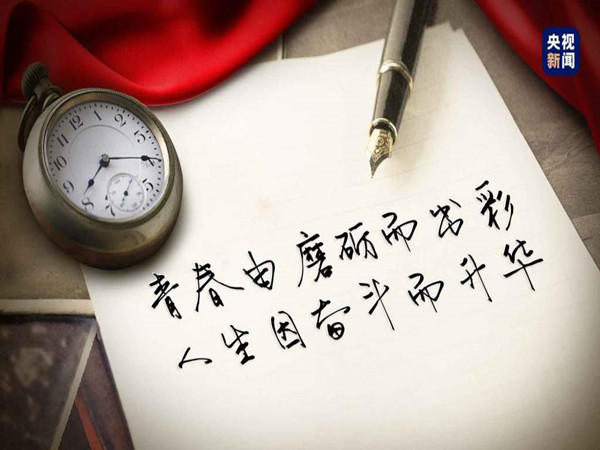 央视
新闻
青春由磨砺而出彩
人生因奋斗而升华